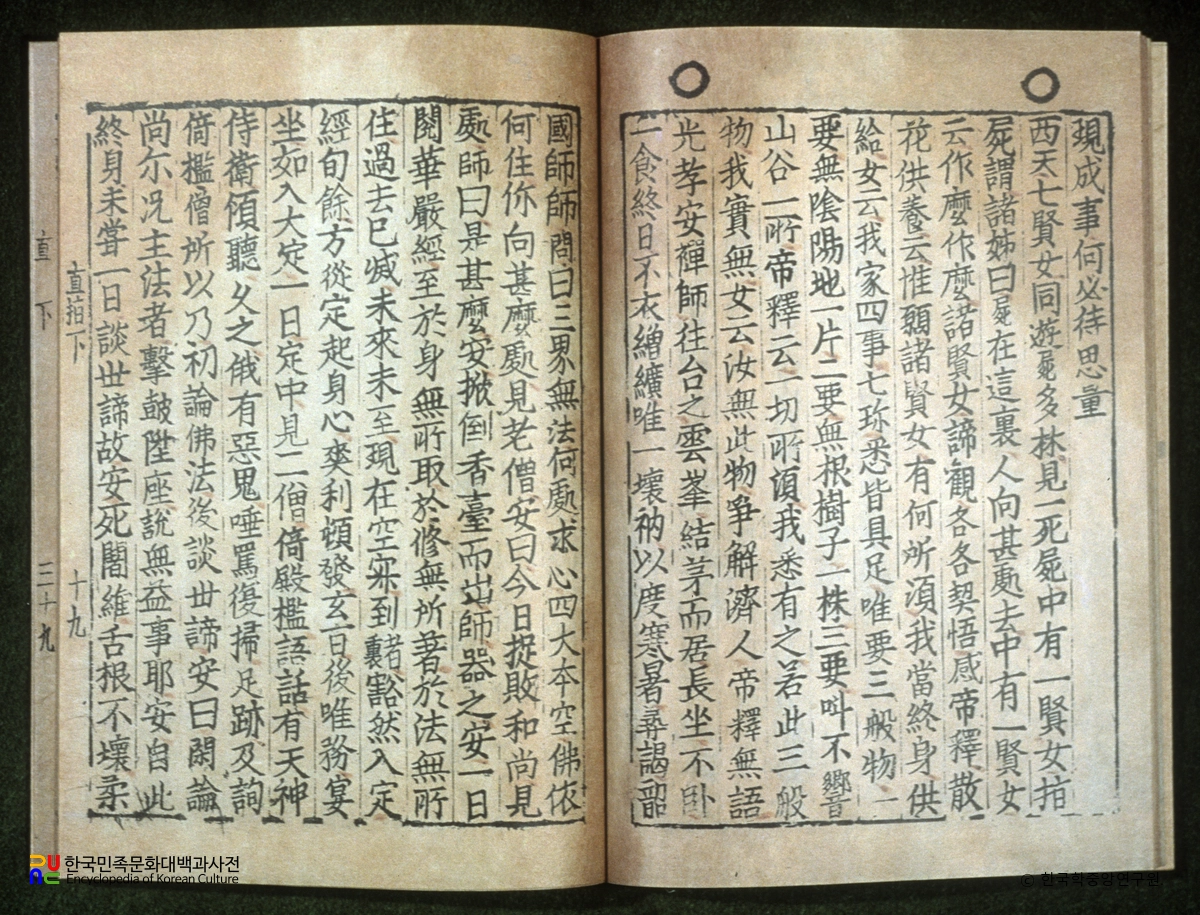 現成事何必待思量
西天七賢女同遊屍多林見一死屍中有一賢女指
屍謂諸姊曰屍在這裏人向甚處去中有一賢女
云作麼作麼諸賢女諦觀各各契悟感帝釋散
花供養云惟願諸賢女有何所須我當終身供
給女云我家四事七珎悉皆具足唯要三般物一
要無陰陽地一片二要無根樹子一株三要叫不響
山谷一所帝釋云一切所須我悉有之若此三般
物我實無女云汝無此物爭解濟人帝釋無語
光孝安禪師往台之雲峯結茅而居長坐不臥
一食終日不衣繒纊唯一壞衲以度寒暑尋謁韶
國師師問曰三界無法何處求心四大本空佛依
何住你向甚麼處見老僧安曰今日捉敗和尚見
處師曰是甚麼安掀倒香臺而出師器之安一日
閱華嚴經至於身無所取於修無所著於法無所
住過去已滅未來未至現在空寂到者裏豁然入定
經旬餘方從定起身心爽利頓發玄旨後唯務宴
坐如入大定一日定中見二僧倚殿檻語話有天神
侍衛傾聽久之俄有惡鬼唾罵復掃足跡及詢
倚檻僧所以乃初論佛法後談世諦安曰閑論
尚尒况主法者擊鼓陞座說無益事耶安自此
終身未嘗一日談世諦故安死闍維舌根不壞柔
直指下
十九
直下
三十九
한국민족문화대백과사전
Encyclopedia of Korean Culture
© 한국학중앙연구원